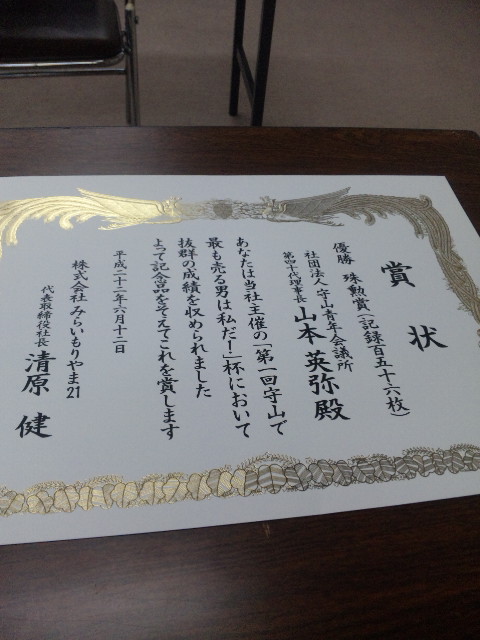 賞状
優勝 殊勲賞(記録百五十六枚)
社団法人 守山青年会議所
第四十代理事長 山本英弥殿
あなたは当社主催の「第一回守山で
最も売る男は私だー」杯において
抜群の成績を収められました
よって記念品をそえてこれを賞します
平成二十二年六月十二日
株式会社みらいもりやま21
代表取締役社長 清原 健